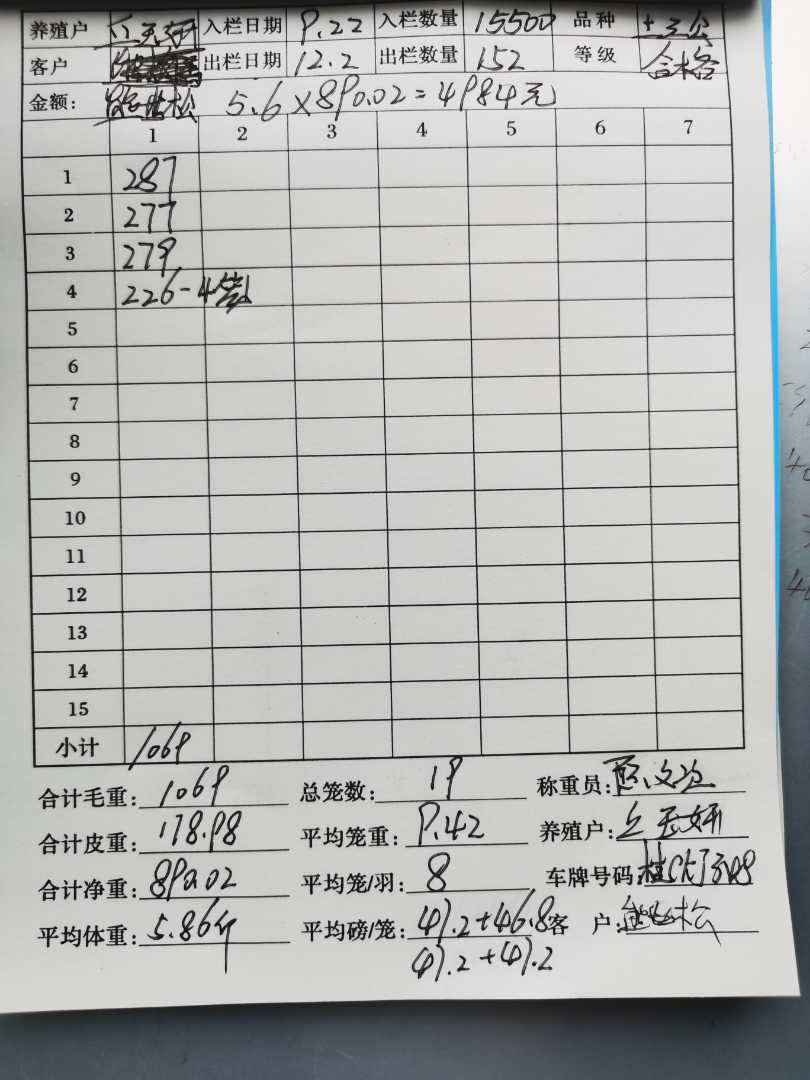 养殖户 入栏日期 9.22 入栏数量 15500 品种 土3公
客户 出栏日期 12.2 出栏数量 152 等级 合格
金额: 5.6×890.02=4984元
1 2 3 4 5 6 7
1 287
2 277
3 279
4 226-4
5
6
7
8
9
10
11
12
13
14
15
小计 1069
合计毛重: 1069 总笼数: 19 称重员:
合计皮重: 178.98 平均笼重: 9.42 养殖户:
合计净重: 890.02 平均笼/羽: 8 车牌号码:
平均体重: 5.86斤 平均磅/笼: 47.2+46.8 客户: 松
47.2+47.2